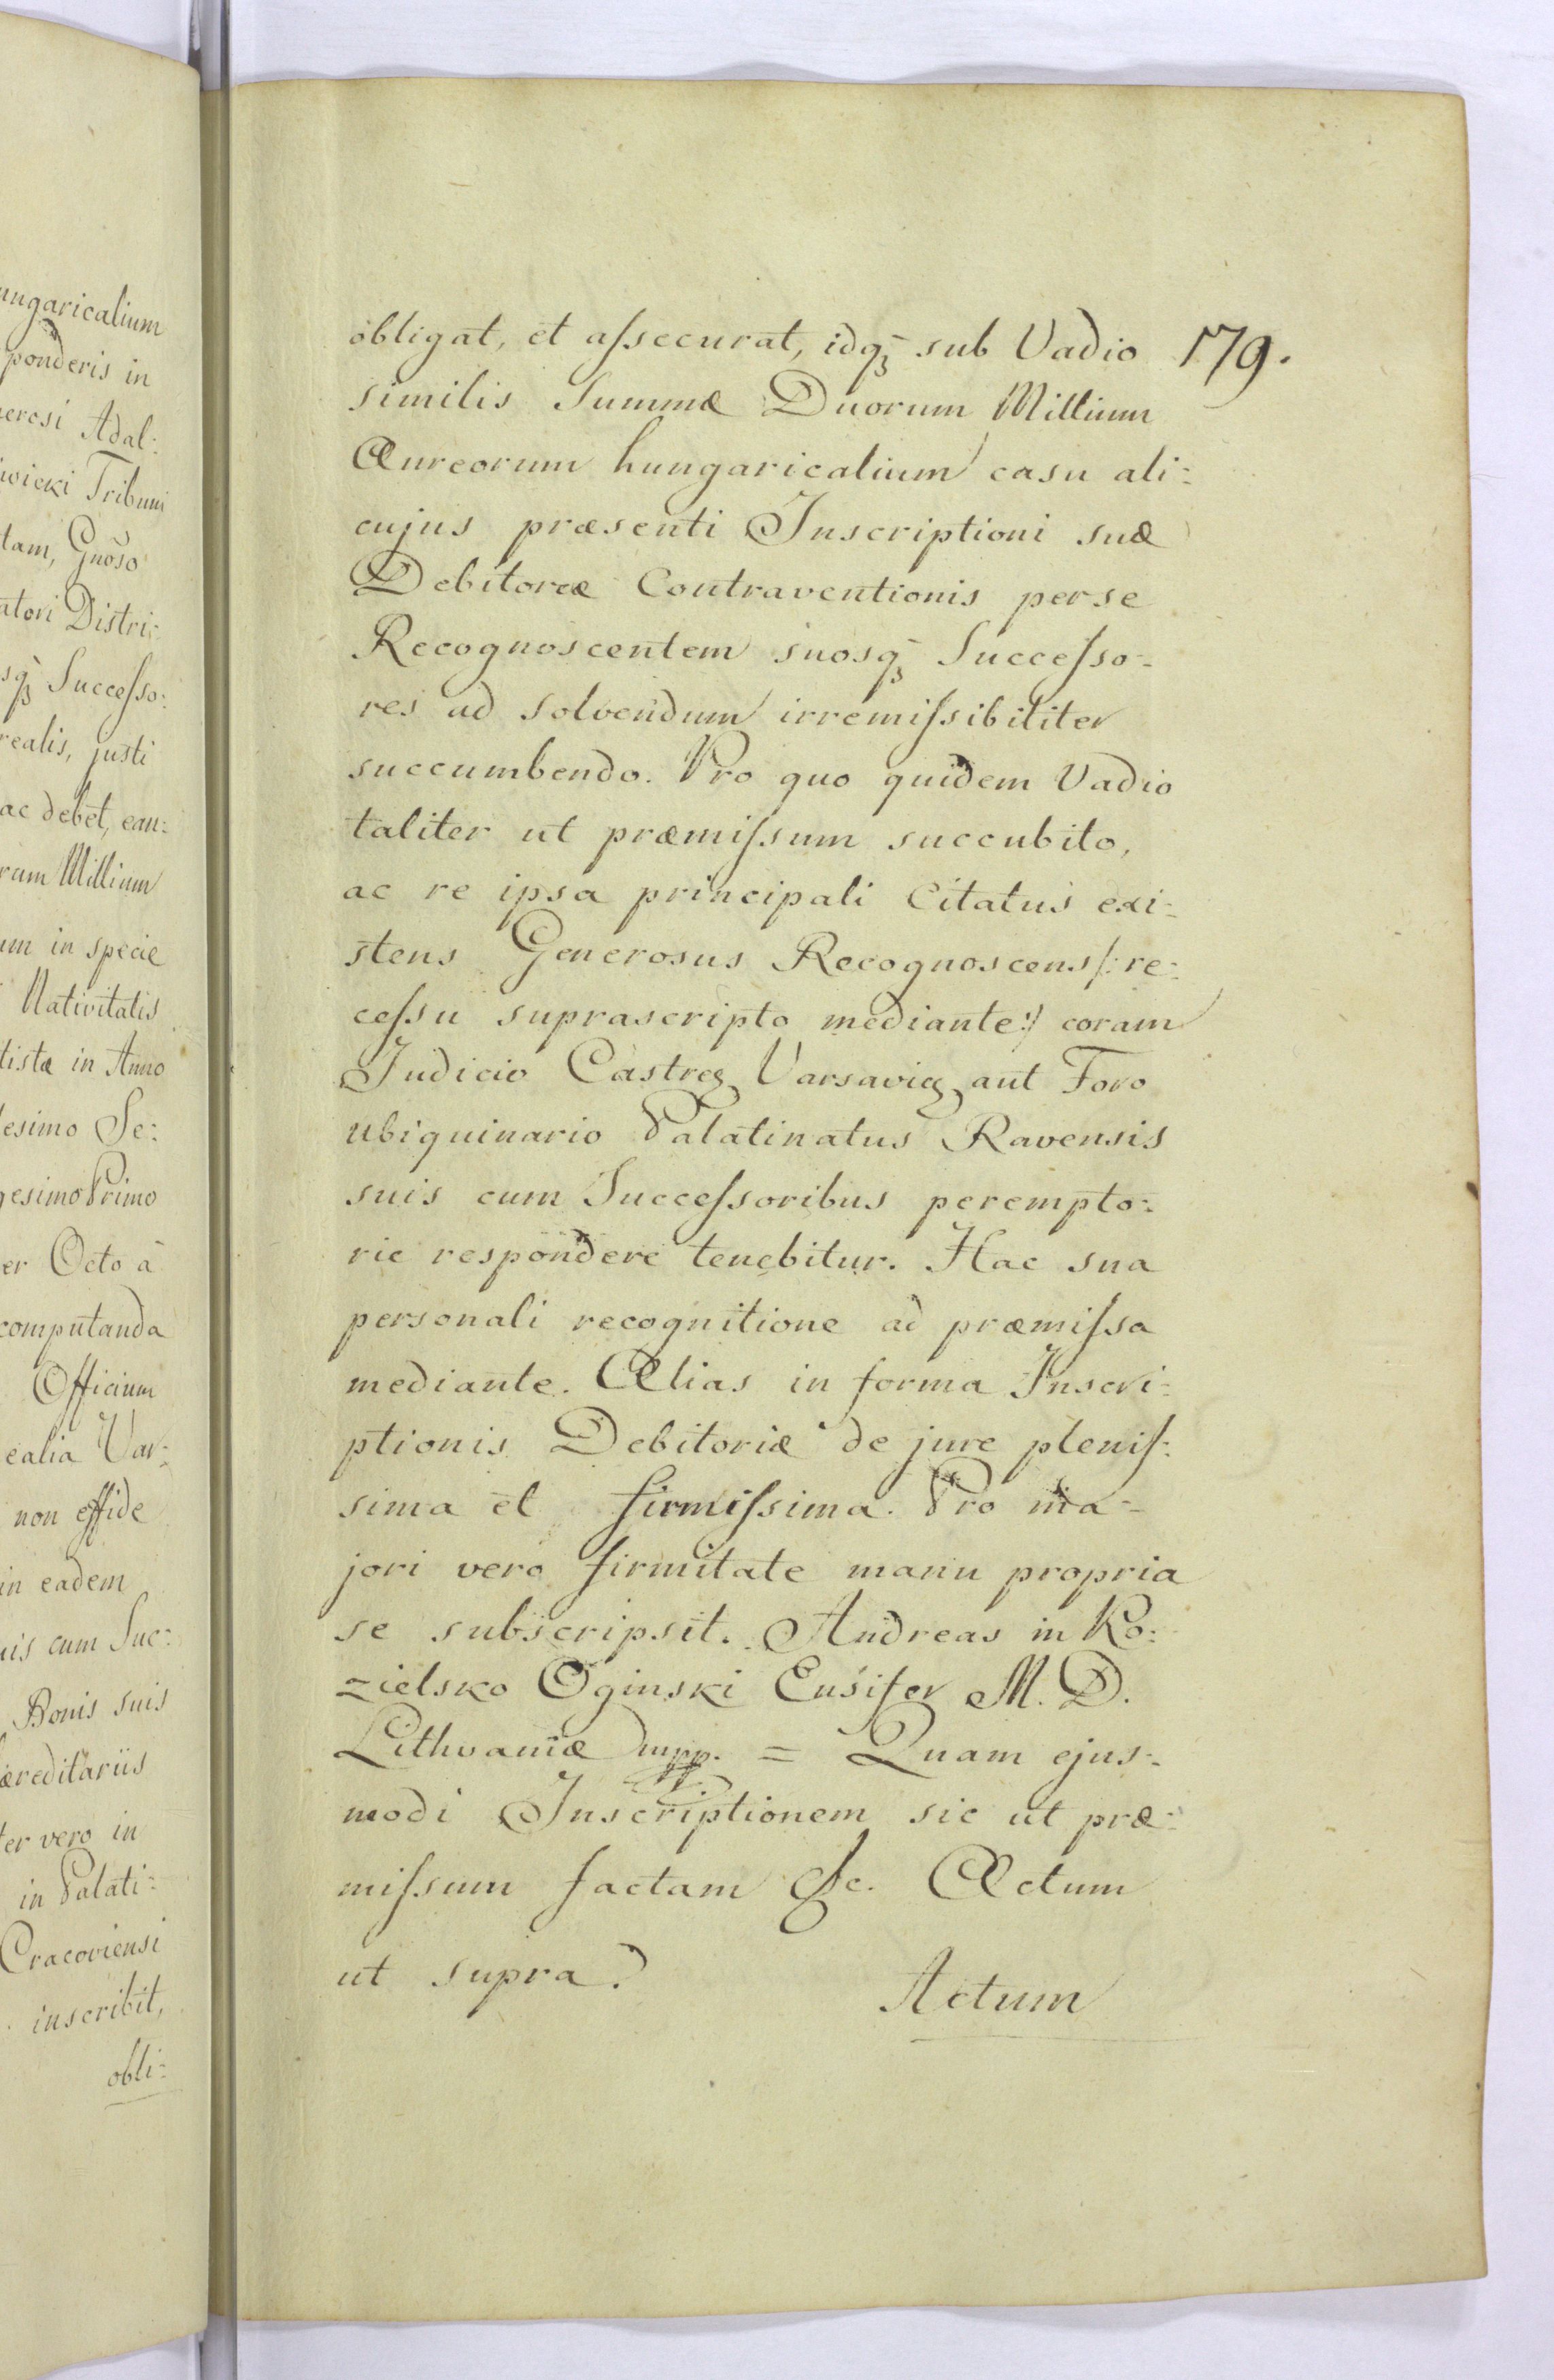 ungaricalium
ponderis in
nerosi Adal:
iwicki Tribuni
tam, Gnoso
atori Distri:
sq3 Succeſso:
realis, justi
ac debet, ean:
rum Millium
um in specie
Nativitatis
tistæ in Anno
lesimo Se:
gesimo Primo
er Octo à
computanda
Officium
ealia Var:
non effide
in eadem
uis cum Suc:
Bonis suis
æreditariis
ter vero in
in Palati:
Cracoviensi
inscribit,
obli:
179.
obligat, et aſsecurat, idq3 sub Vadio
similis Summæ Duorum Millium
Aureorum hungaricalium casu ali:
cujus præsenti Inscriptioni suæ
Debitoreæ Contraventionis per se
Recognoscentem suosq3 Succeſso-
res ad solvendum irremiſsibiliter
succumbendo. Pro quo quidem Vadio
taliter ut præmiſsum succubito,
ac re ipsa principali Citatus exi:
stens Generosus Recognoscens /: re:
ceſsu suprascripto mediante :/ coram
Judicio Castreę Varsavię aut Foro
ubiquinario Palatinatus Ravensis
suis cum Succeſsoribus perempto:
rie respondere tenebitur. Hac sua
personali recognitione ad præmiſsa
mediante. Alias in forma Inscri:
ptionis Debitoriæ de jure pleniſ:
sima et firmiſsima. Pro ma-
jori vero firmitate manu propria
se subscripsit. Andreas in Ko:
zielsko Oginski Ensifer M. D.
Lithvaniæ mpp. = Quam ejus:
modi Inscriptionem sic ut præ:
miſsum factam &c. Actum
ut supra.
Actum